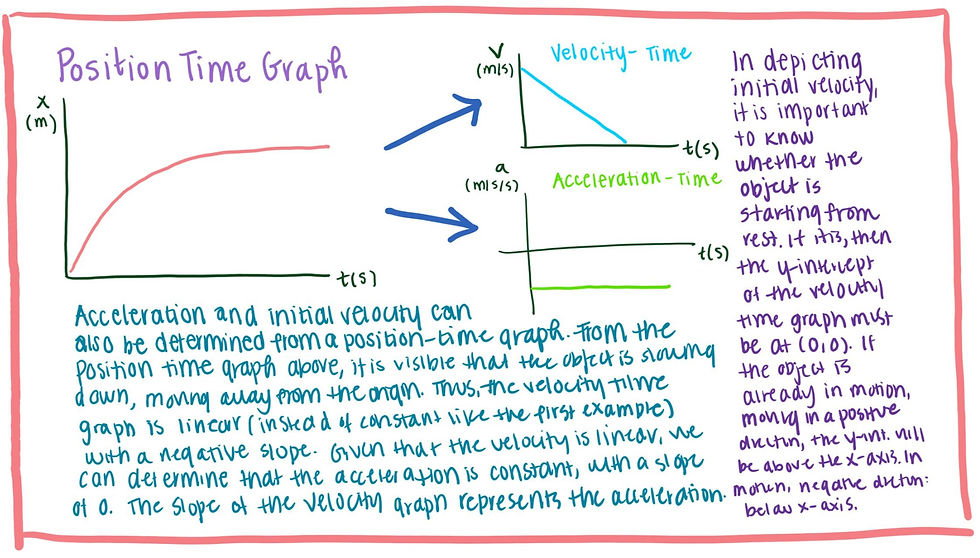 Position Time Graph
x
(m)
t(s)
v
(m/s)
Velocity-Time
t(s)
a
(m/s/s)
Acceleration-Time
t(s)
Acceleration and initial velocity can
also be determined from a position-time graph. From the
position time graph above, it is visible that the object is slowing
down, moving away from the origin. Thus, the velocity time
graph is linear (instead of constant like the first example)
with a negative slope. Given that the velocity is linear, we
can determine that the acceleration is constant, with a slope
of 0. The slope of the velocity graph represents the acceleration.
In depicting
initial velocity,
it is important
to know
whether the
object is
starting from
rest. If it is, then
the y-intercept
of the velocity
time graph must
be at (0,0). If
the object is
already in motion,
moving in a positive
directin, the y-int. will
be above the x-axis. In
motion, negative directn:
below x-axis.